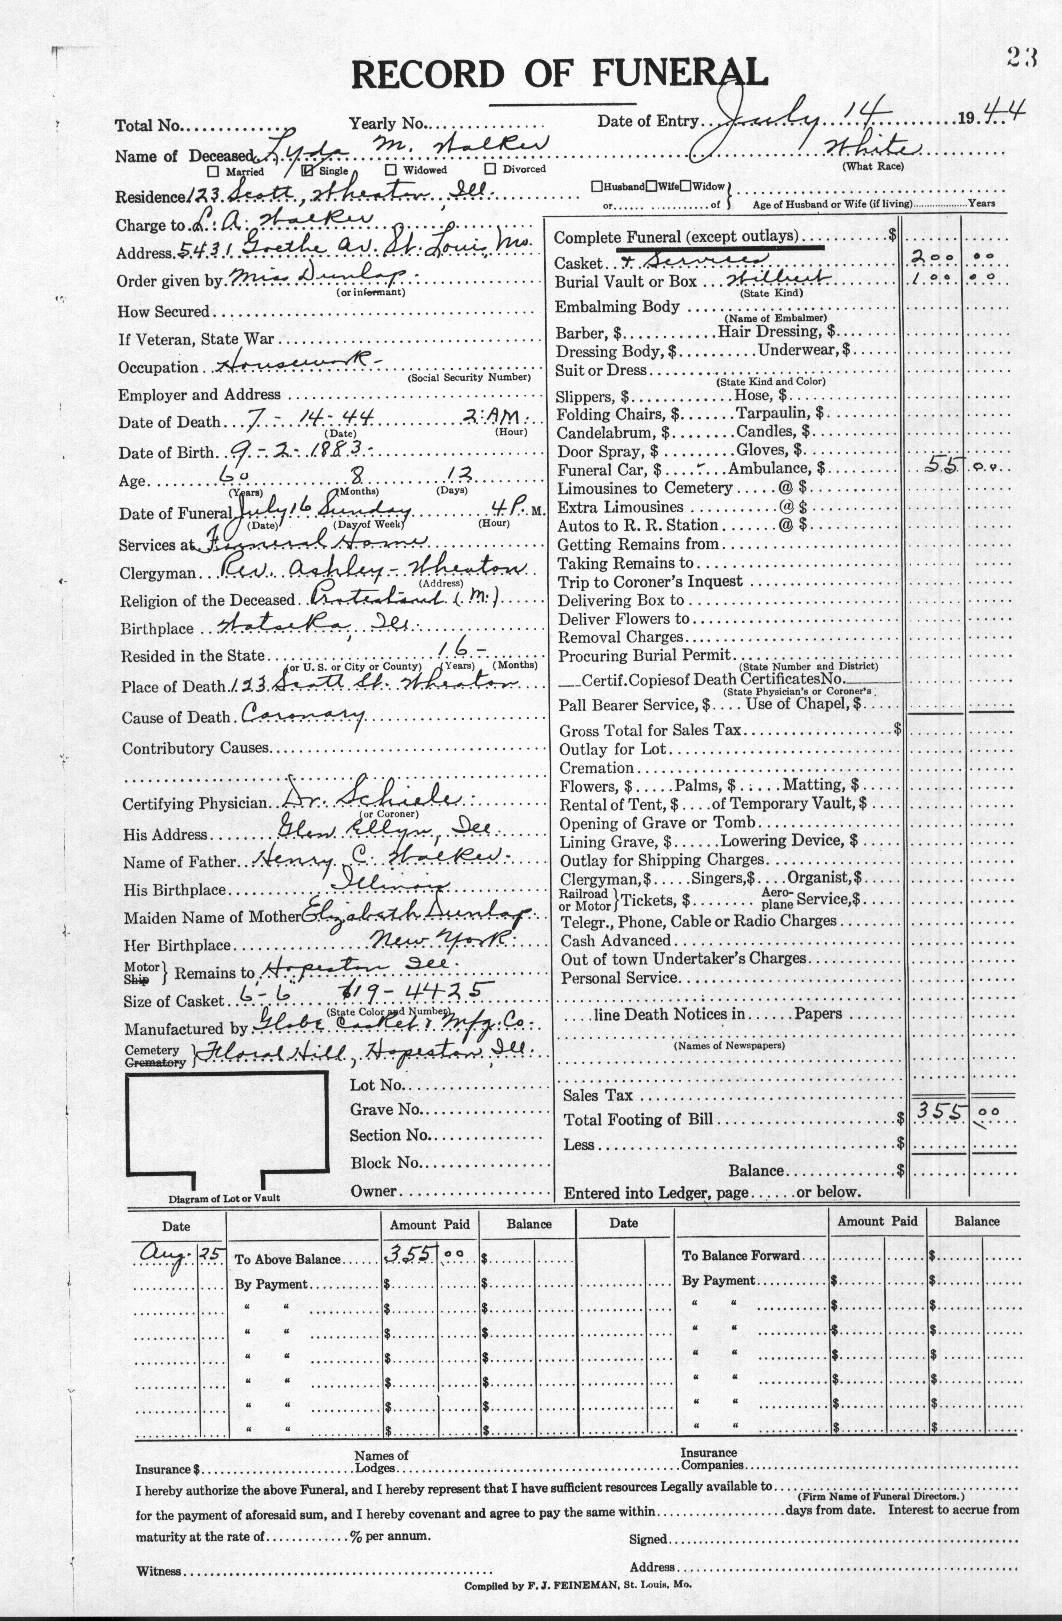 23
RECORD OF FUNERAL
Total No. Yearly No. Date of Entry July 14 1944
Name of Deceased Lyda M. Walker White
☐ Married ☑ Single ☐ Widowed ☐ Divorced (What Race)
Residence 123 Scott, Wheaton, Ill. ☐Husband☐Wife☐Widow}
or of } Age of Husband or Wife (if living) Years
Charge to L. A. Walker
Address 5431 Goethe Av. St. Louis, Mo.
Order given by Miss Dunlap
(or informant)
How Secured
If Veteran, State War
Occupation Housework -
(Social Security Number)
Employer and Address
Date of Death 7 - 14 - 44 2 AM.
(Date) (Hour)
Date of Birth 9 - 2 - 1883 -
Age 60 8 12
(Years) (Months) (Days)
Date of Funeral July 16 Sunday 4 P. M.
(Date) (Day of Week) (Hour)
Services at Funeral Home
Clergyman Rev. Ashley - Wheaton
(Address)
Religion of the Deceased Protestant (M.)
Birthplace Watseka, Ill.
Resided in the State 16 -
(or U. S. or City or County) (Years) (Months)
Place of Death 123 Scott St. Wheaton
Cause of Death Coronary
Contributory Causes
Certifying Physician Dr. Schiele
(or Coroner)
His Address Glen Ellyn, Ill
Name of Father Henry C. Walker -
His Birthplace Illinois
Maiden Name of Mother Elizabeth Dunlap
Her Birthplace New York
Motor
Ship } Remains to Hopeston Ill.
Size of Casket 6 - 6 19 - 4425
(State Color and Number)
Manufactured by Globe Casket & Mfg. Co.
Cemetery
Crematory } Floral Hill, Hopeston, Ill.
Lot No.
Grave No.
Section No.
Block No.
Diagram of Lot or Vault
Owner
Complete Funeral (except outlays) $
Casket & Services 200 00
Burial Vault or Box Wilbert 100 00
(State Kind)
Embalming Body
(Name of Embalmer)
Barber, $ Hair Dressing, $
Dressing Body, $ Underwear, $
Suit or Dress
(State Kind and Color)
Slippers, $ Hose, $
Folding Chairs, $ Tarpaulin, $
Candelabrum, $ Candles, $
Door Spray, $ Gloves, $
Funeral Car, $ Ambulance, $ 55 00
Limousines to Cemetery @ $
Extra Limousines @ $
Autos to R. R. Station @ $
Getting Remains from
Taking Remains to
Trip to Coroner's Inquest
Delivering Box to
Deliver Flowers to
Removal Charges
Procuring Burial Permit
(State Number and District)
Certif. Copies of Death Certificates No.
(State Physician's or Coroner's
Pall Bearer Service, $ Use of Chapel, $
Gross Total for Sales Tax $
Outlay for Lot
Cremation
Flowers, $ Palms, $ Matting, $
Rental of Tent, $ of Temporary Vault, $
Opening of Grave or Tomb
Lining Grave, $ Lowering Device, $
Outlay for Shipping Charges
Clergyman, $ Singers, $ Organist, $
Railroad
or Motor } Tickets, $ Aero-
plane Service, $
Telegr., Phone, Cable or Radio Charges
Cash Advanced
Out of town Undertaker's Charges
Personal Service
line Death Notices in Papers
(Names of Newspapers)
Sales Tax
Total Footing of Bill $ 355 00
Less $
Balance $
Entered into Ledger, page or below.
Date Amount Paid Balance Date Amount Paid Balance
Aug. 25 To Above Balance 355 00 $ To Balance Forward $
By Payment $ $ By Payment $ $
“ “ $ $ “ “ $ $
“ “ $ $ “ “ $ $
“ “ $ $ “ “ $ $
“ “ $ $ “ “ $ $
“ “ $ $ “ “ $ $
“ “ $ $ “ “ $ $
Insurance $ Names of
Lodges Insurance
Companies
I hereby authorize the above Funeral, and I hereby represent that I have sufficient resources Legally available to
(Firm Name of Funeral Directors.)
for the payment of aforesaid sum, and I hereby covenant and agree to pay the same within days from date. Interest to accrue from
maturity at the rate of % per annum. Signed
Witness Address
Compiled by F. J. FEINEMAN, St. Louis, Mo.